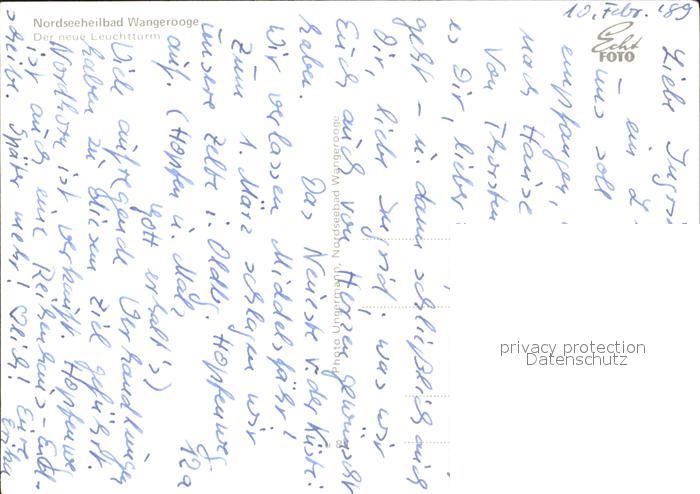 Nordseeheilbad Wangerooge
Der neue Leuchtturm
Echt
FOTO
10. Febr. '89
Liebe
ein
uns soll
empfangen,
nach Hause
von Thorsten
es Dir, lieber
geht – u. dann schließlich auch
Dir, liebe Ingrid, was wir
Euch auch von Herzen gewünscht
haben. Das Neueste v. der Küste:
Wir verlassen Middelsfähr!
Zum 1. März schlagen wir
unsere Zelte i. Oldbg. Hopfenweg
auf. (Hopfen u. Malz 12a
Gott erhalt's)
Viele aufregende Verhandlungen
haben zu diesem Ziel geführt.
Nordhorn ist verkauft. Hopfenweg
ist auch eine Reihenhaus-End-
scheibe. Später mehr! Eure
Photo Ungermann, Nordseebad Wangerooge
privacy protection
Datenschutz